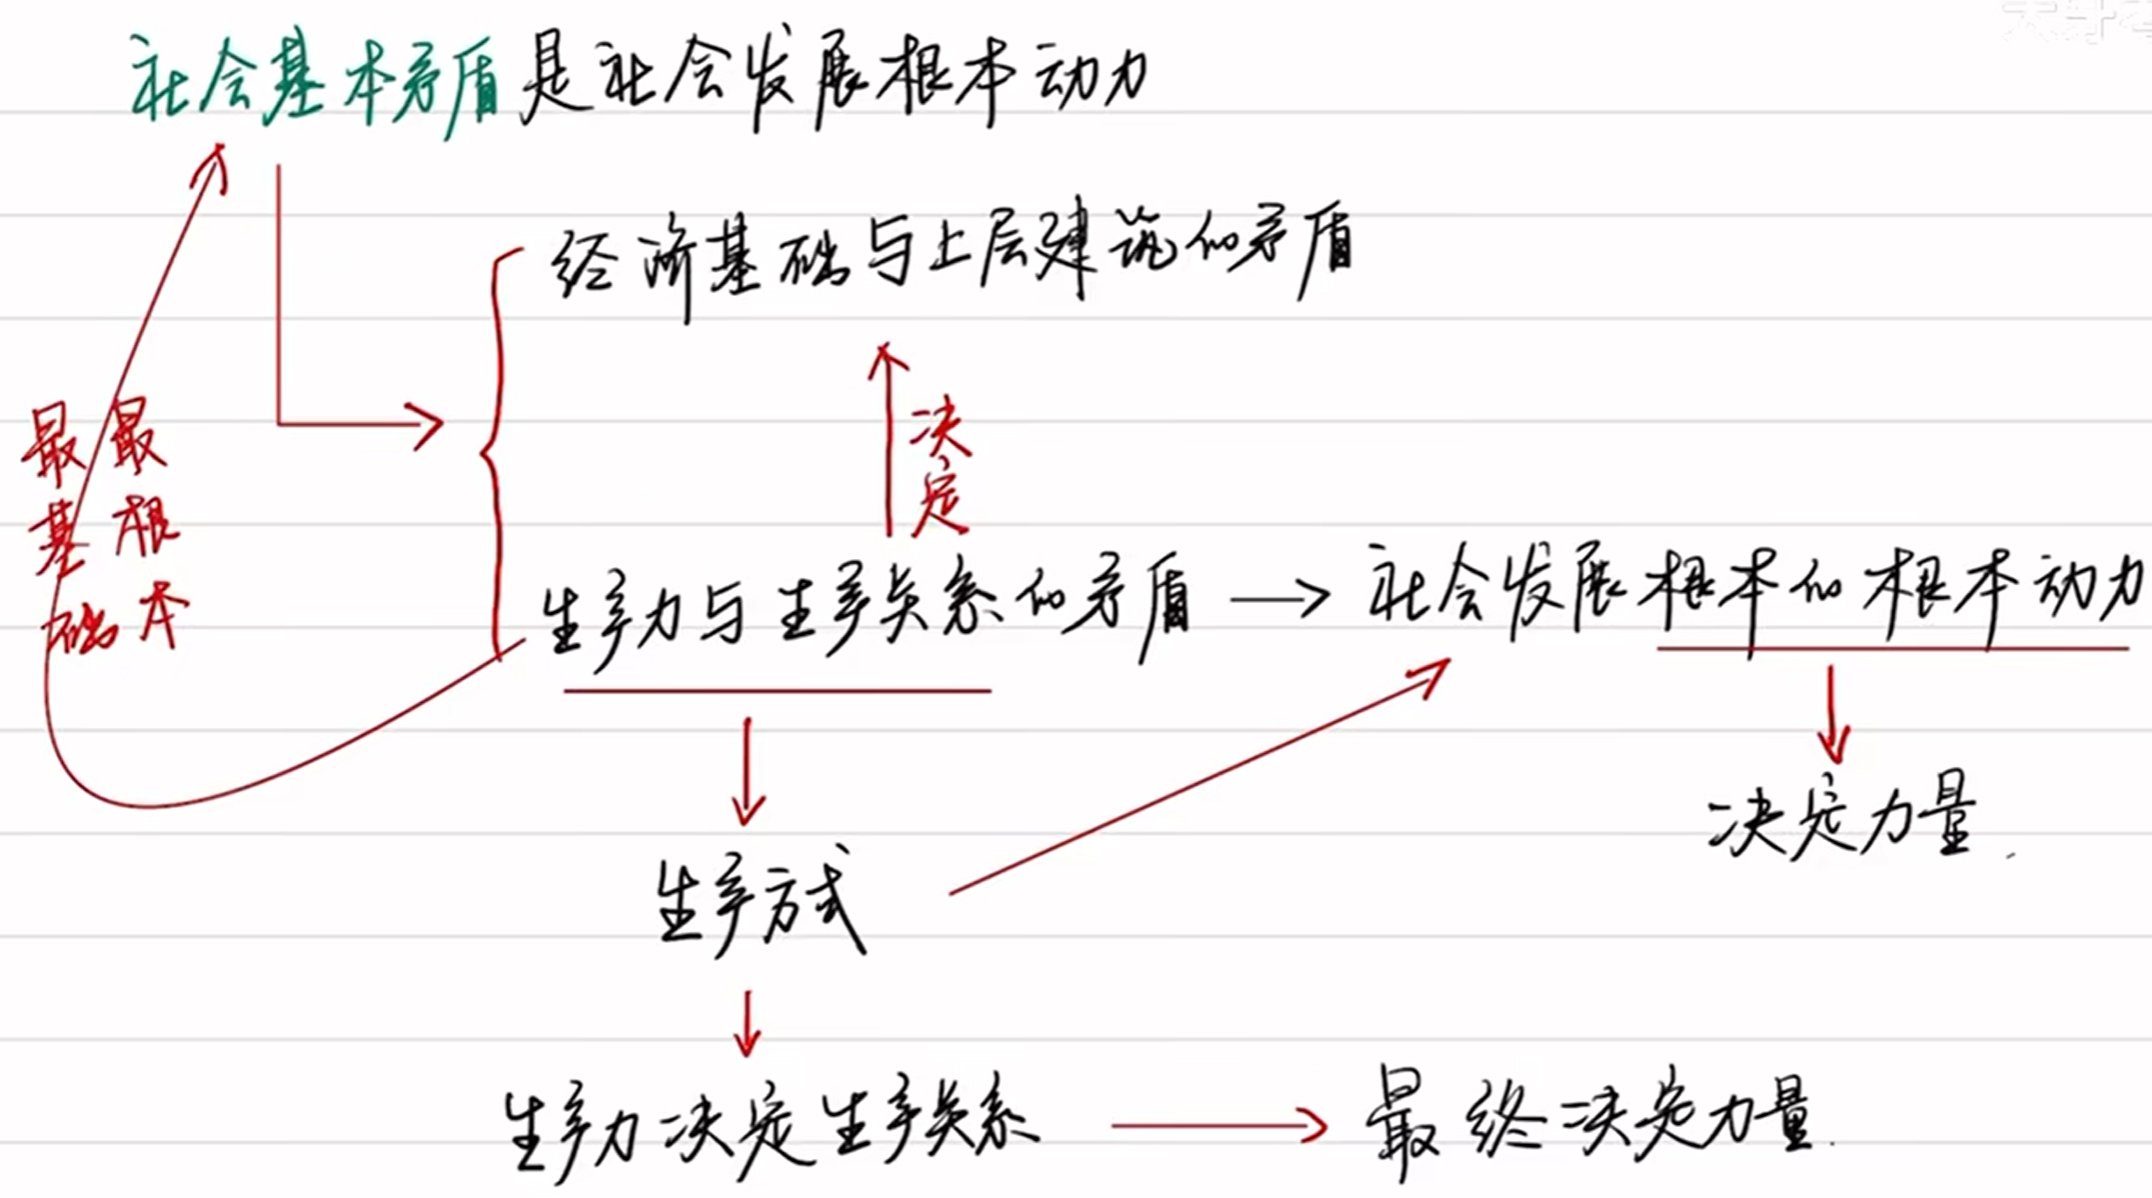 社会基本矛盾是社会发展根本动力
经济基础与上层建筑的矛盾
决定
最基础
最根本
生产力与生产关系的矛盾 → 社会发展根本的根本动力
决定力量
生产方式
生产力决定生产关系 → 最终决定力量.